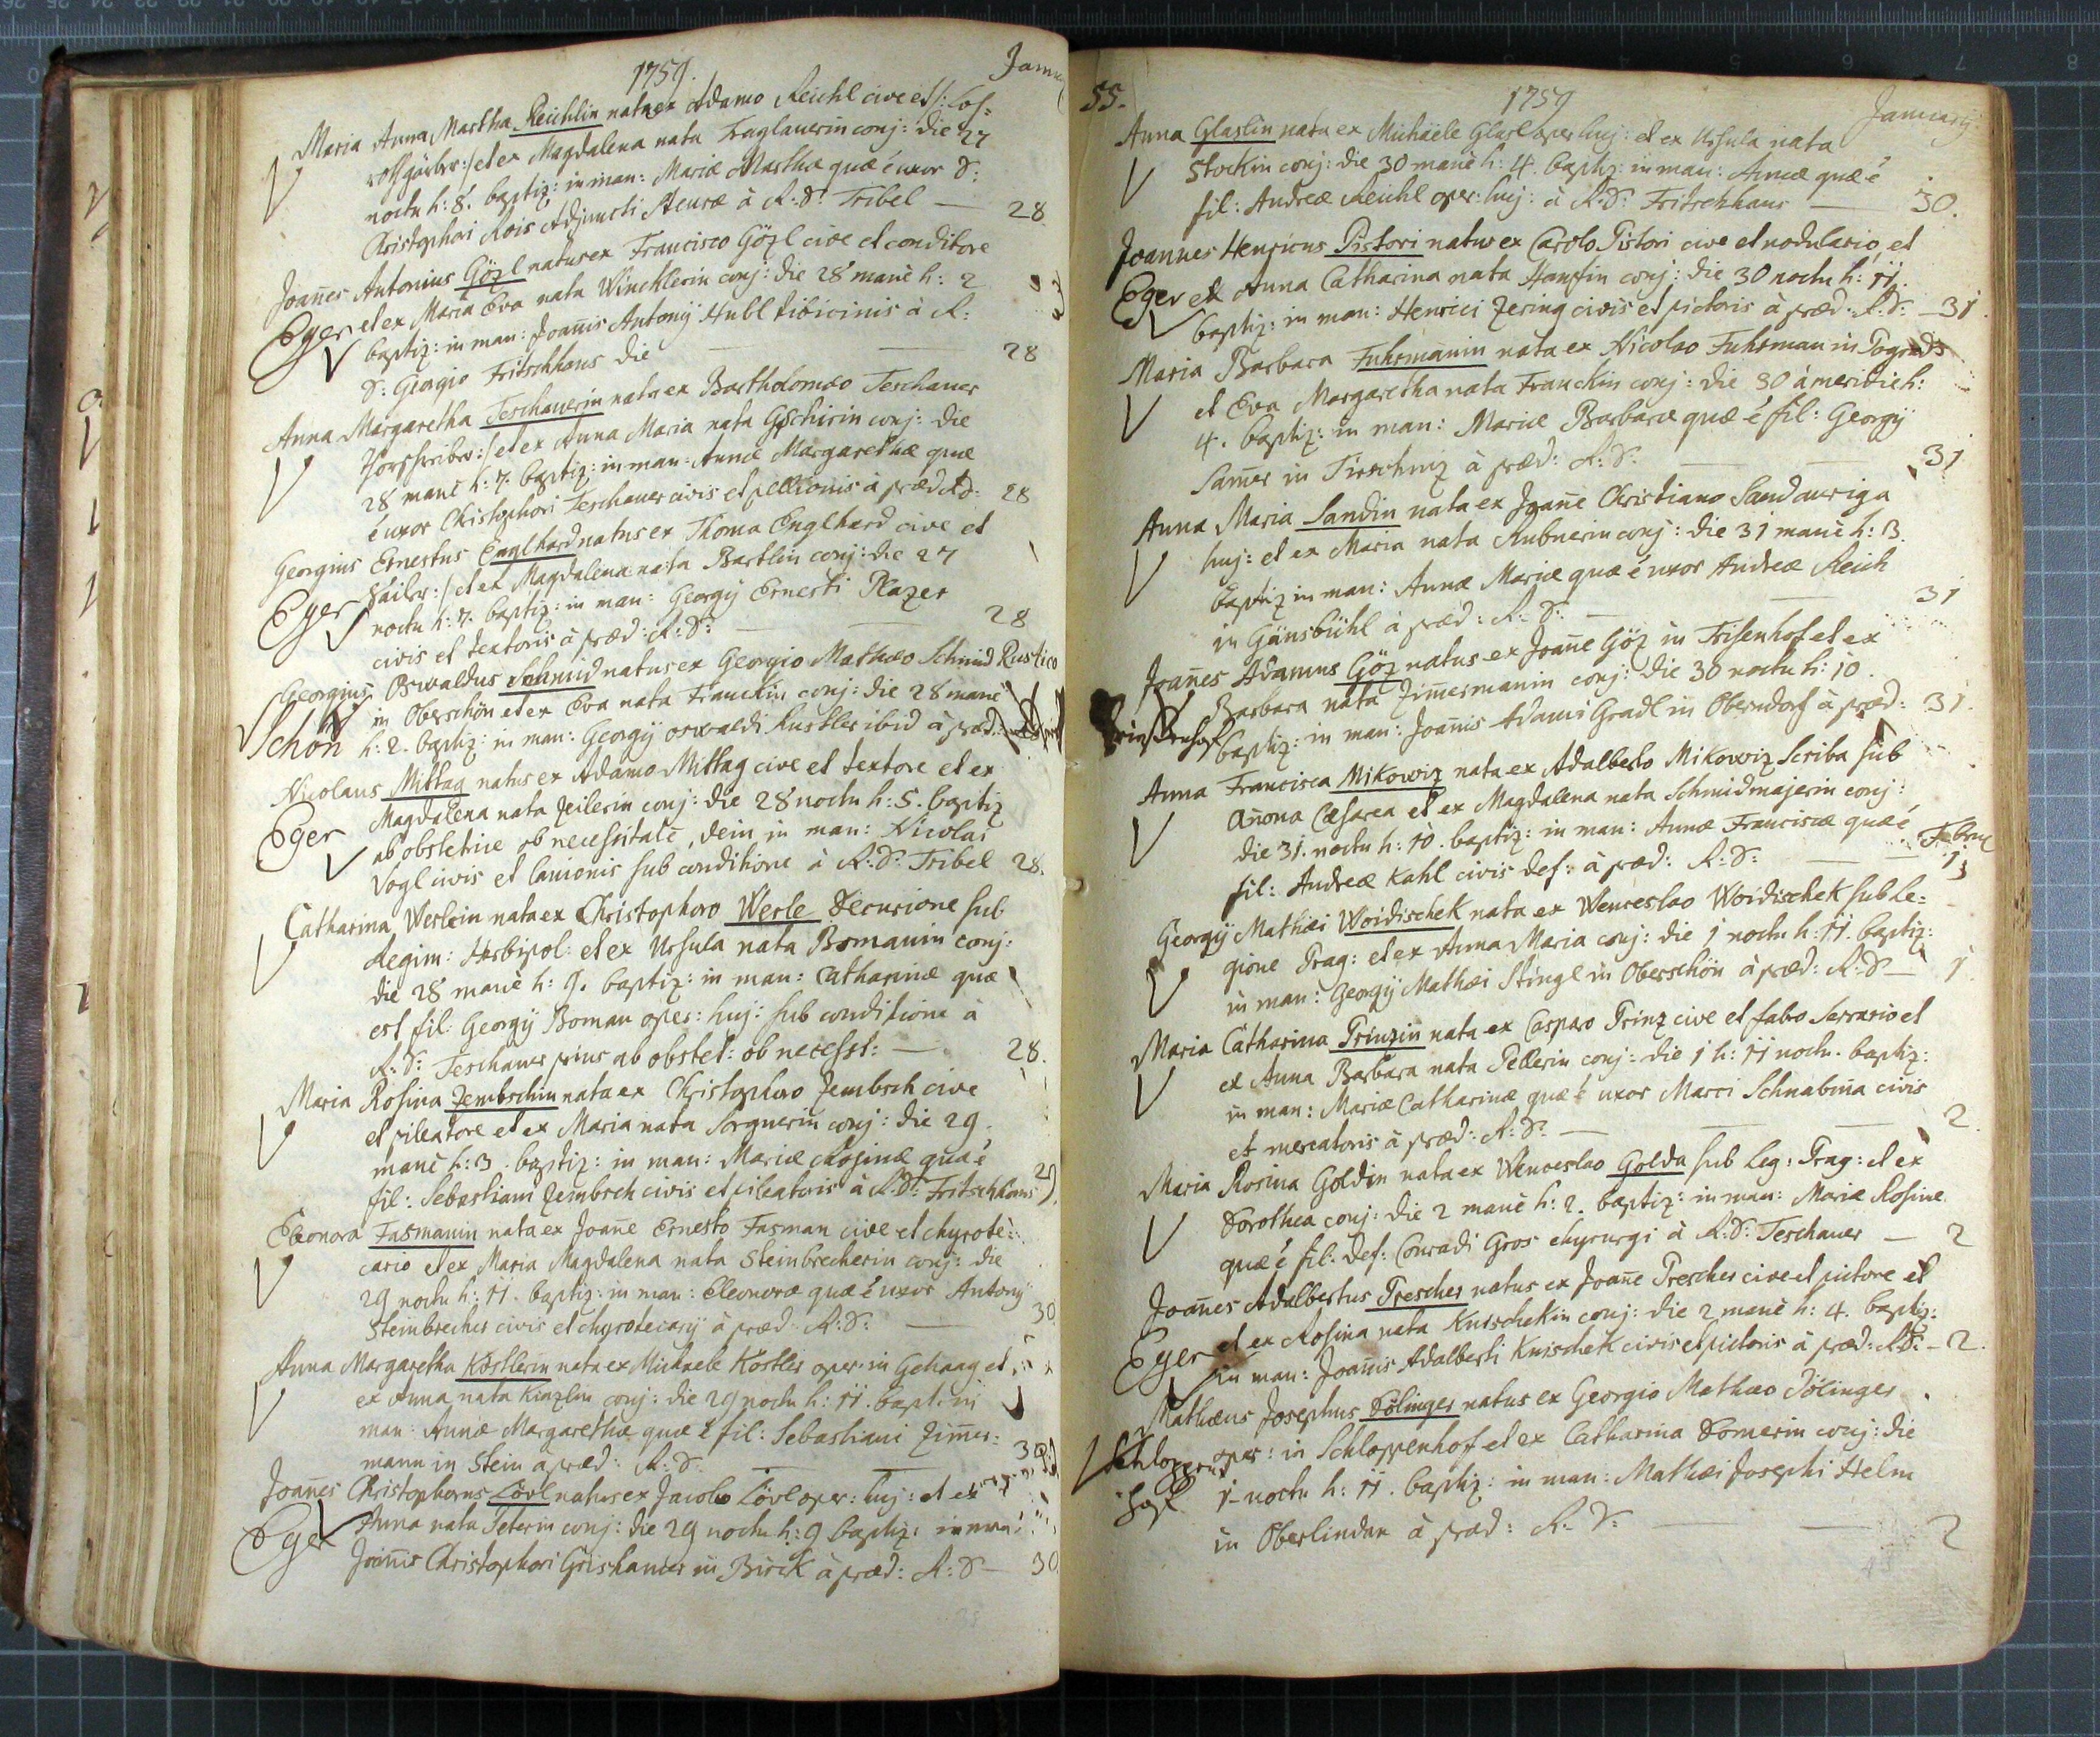 1759.
Maria Anna Martha Reichlin nata ex Adamo Reichl cive et /: Loh=
rothgärber :/ et ex Magdalena nata Fraglauerin conj: die 27
noctu h: 8. baptiz: in man: Mariæ Marthæ quæ é uxor D:
Christophori Rois Adjuncti Steuræ à R: D: Tribel — 28
Joañes Antonius Gözl natus ex Francisco Gözl cive et conditore
Eger et ex Maria Eva nata Wincklerin conj: die 28 manè h: 2
baptiz: in man: Joañis Antonij Hubl tibicinis à R:
D: Georgio Fritschhans die — 28
Anna Margaretha Teschauerin nata ex Bartholomæo Teschauer
Thorschreiber :/ et ex Anna Maria nata conj: die
28 manè h: 7. baptiz: in man: Annæ Margarethæ quæ
é uxor Christophori Teschauer civis et pellionis à præd: R: D: 28
Georgius Ernestus Englhard natus ex Thoma Englhard cive et
Eger Sailer :/ et ex Magdalena nata Bartlin conj: die 27
noctu h: 7. baptiz: in man: Georgij Ernesti Plazer
civis et textoris à præd: R: D: — 28
Georgius Oswaldus Schmid natus ex Georgio Mathæo Schmid Rustico
in Oberschön et ex Eva nata Franckin conj: die 28 manè
Schön h: 2. baptiz: in man: Georgij oswaldi Rustler ibid à præd:
Nicolaus Mittag natus ex Adamo Mittag cive et textore et ex
Magdalena nata Zeilerin conj: die 28 noctu h: 5. baptiz
Eger ab obstetrice ob necessitatē, dein in man: Nicolai
Vogl civis et lanionis sub conditione à R: D: Tribel 28.
Catharina Werlein nata ex Christophoro Werle Decurione sub
Regim: Herbipol: et ex Ursula nata Bomanin conj:
die 28 manè h: 9. baptiz: in man: Catharinæ quæ
est fil: Georgij Boman oper: huj: sub conditione à
R: D: Teschauer prius ab obstet: ob necesst: — 28.
Maria Rosina Zembschin nata ex Christophoro Zembsch cive
et pileatore et ex Maria nata Sorgnerin conj: die 29
manè h: 3. baptiz: in man: Mariæ Rosinæ quæ é
fil: Sebastiani Zembsch civis et pileatoris à R: D: Fritschhans 29.
Eleonora Fasmanin nata ex Joañe Ernesto Fasman cive et chyrote=
cario et ex Maria Magdalena nata Steinbrecherin conj: die
29 noctu h: 11. baptiz: in man: Eleonoræ quæ é uxor Antonij
Steinbrecher civis et chyrotecarij à præd: R: D: — 30
Anna Margaretha Köstlerin nata ex Michaele Köstler oper: in Gehaag et
ex Anna nata conj: die 29 noctu h: 11. bapt: in
man: Annæ Margarethæ quæ é fil: Sebastiani Zim̃er=
mann in Stein à præd: R: D: — 30
Joañes Christophorus Lövl natus ex Jacobo Lövl oper: huj: et ex
Eger Anna nata Peterin conj: die 29 noctu h: 9 baptiz: in man:
Joañis Christophori Grishamer in Birck à præd: R: D — 30
55.
1759
Januarij
Anna Glaslin nata ex Michäele Glasl oper huj: et ex Ursula nata
Stockin conj: die 30 manè h: 4. baptiz: in man: Annæ quæ é
fil: Andreæ Reichl oper: huj: à R: D: Fritschhans — 30.
Joannes Henricus Pistori natus ex Carolo Pistori cive et nodulario, et
Eger ex Anna Catharina nata conj: die 30 noctu h: 11.
baptiz: in man: Henrici Zering civis et pictoris à præd: R: D: — 31.
Maria Barbara Fuhrmanin nata ex Nicolao Fuhrman in Pograds
et Eva Margaretha nata Franckin conj: die 30 à meridie h:
4. baptiz: in man: Mariæ Barbaræ quæ é fil: Georgij
Sam̃er in Tirschniz à præd: R: D: — 31
Anna Maria Sandin nata ex Joañe Christiano Sand auriga
huj: et ex Maria nata Rubnerin conj: die 31 manè h: 3.
baptiz in man: Annæ Mariæ quæ é uxor Andreæ Reich
in Gänsbühl à præd: R: D: — 31
Joañes Adamus Göz natus ex Joañe Göz in Trisenhof et ex
Barbara nata Zim̃ermanin conj: die 30 noctu h: 10.
baptiz: in man: Joañis Adami Gradl in Oberndorf à præd: 31.
Anna Francisca Mikowiz nata ex Adalberto Mikowiz Scriba sub
Añona Cæsarea et ex Magdalena nata Schmidmajerin conj:
die 31. noctu h: 10. baptiz: in man: Annæ Franciscæ quæ é
fil: Andreæ Kahl civis def: à præd: R: D: — Febru 1
Georgij Mathæi Woidischek nata ex Wenceslao Woidischek sub Le=
gione Prag: et ex Anna Maria conj: die 1 noctu h: 11. baptiz:
in man: Georgij Mathæi Stingl in Oberschön à præd: R: D — 1
Maria Catharina Prinzin nata ex Casparo Prinz cive et fabro Serrario et
ex Anna Barbara nata Pellerin conj: die 1 h: 11 noctu. baptiz:
in man: Mariæ Catharinæ quæ é uxor Marci Schnabma civis
et mercatoris à præd: R: D: — 2.
Maria Rosina Goldin nata ex Wenceslao Golda sub Leg: Prag: et ex
Dorothea conj: die 2 manè h: 2. baptiz: in man: Mariæ Rosinæ
quæ é fil: def: Conradi Gros chyrurgi à R: D: Teschauer — 2
Joañes Adalbertus Prescher natus ex Joañe Prescher cive et pictore et
Eger et ex Rosina nata Knischekin conj: die 2 manè h: 4. baptiz:
in man: Joañis Adalberti Knischek civis et pictoris à præd: R: D: — 2.
Mathæus Josephus Dölinger natus ex Georgio Mathæo Dölinger
oper: in Schloppenhof et ex Catharina Domerin conj: die
1 noctu h: 11. baptiz: in man: Mathæi Josephi Helm
in Oberlindau à præd: R: D: — 2